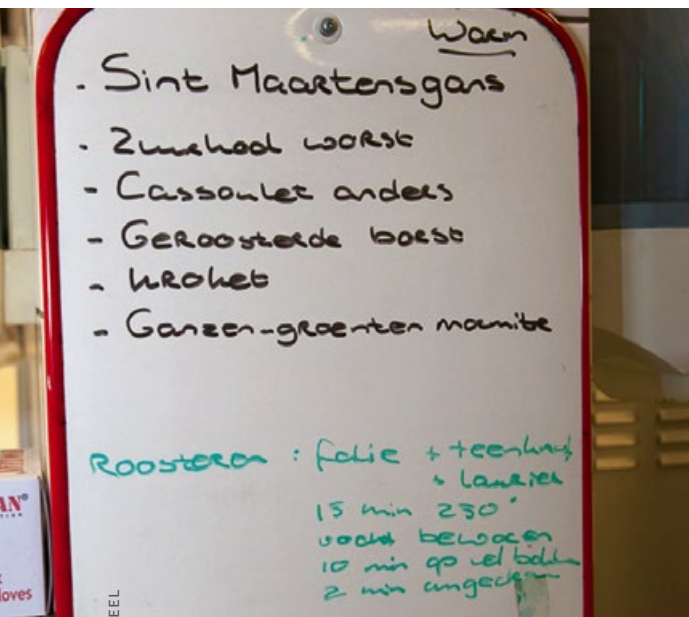 Warm
- Sint Maartensgans
- Zuurkool worst
- Cassoulet anders
- Geroosterde borst
- Kroket
- Ganzen-groenten marmite
Roosteren : folie + teenknof
+ laurier
15 min 230°
vocht bewaren
10 min op vel bakken
2 min
AN®
loves
EEL